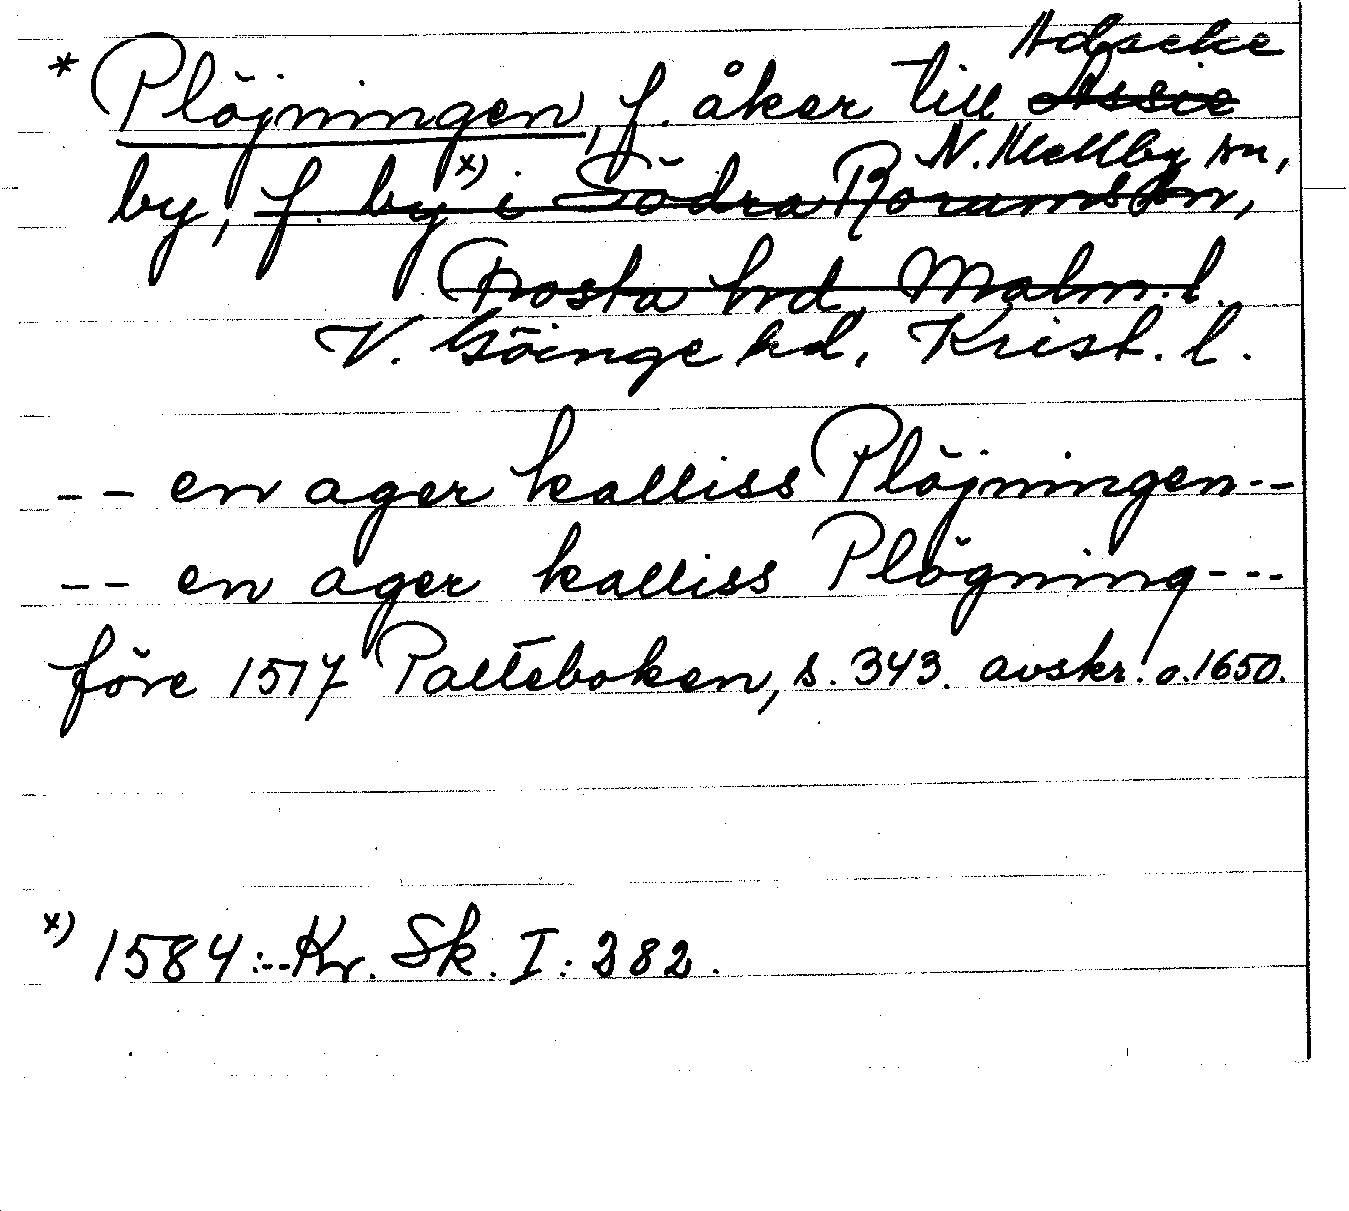 Adseke
* Plöjningen, f. åker till Assie
N. Mellby sn,
by, f. by x) i Södra Rörums sn,
Frosta hd, Malm. l.
V. Göinge hd, Krist. l.
-- en ager kalliss Plöjningen--
-- en ager kalliss Plögning---
före 1517 Palteboken, s. 343. avskr. o. 1650.
x) 1584:--Kr. Sk. I: 282.